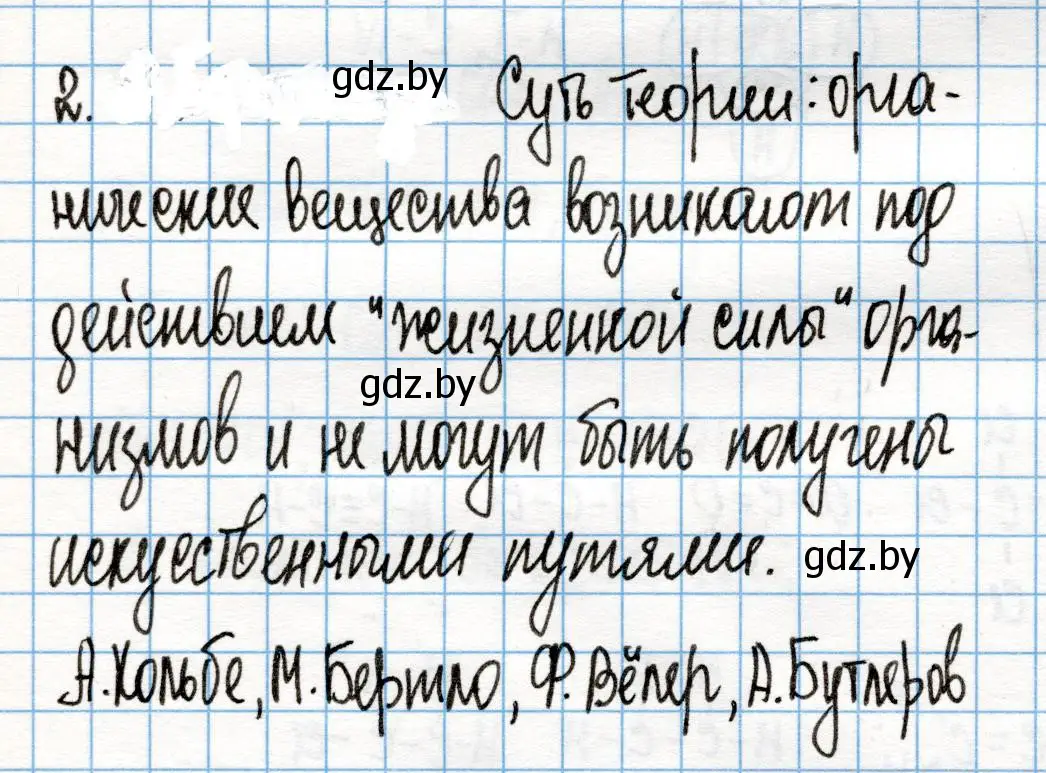 2. gdz.by Суть теории: орга-
нические вещества возникают под
действием "жизненной силы" орга-
gdz.by
низмов и не могут быть получены
искуественными путями. gdz.by
А. Кольбе, М. Бертло, Ф. Вёлер, А. Бутлеров